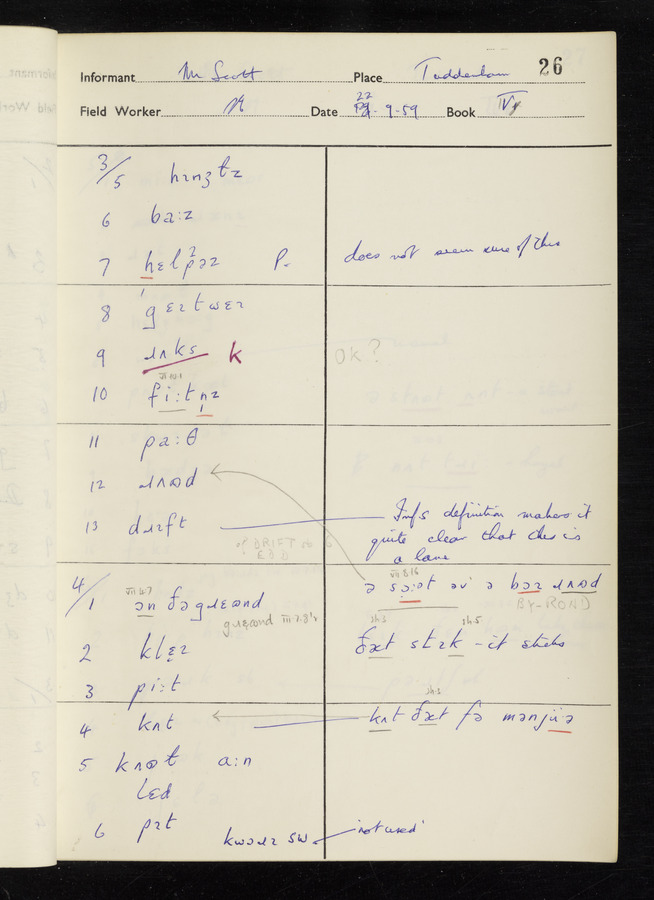 26
Informant Mr Scott Place Tuddenham
Field Worker Date 22 - 9 - 59 Book IV
3/5 hɪnʒtz
6 ba:z
7 hɛlpəz P. does not seem sure of this
8 'gɛɪtwɛɪ
9 ɹʌks k OK?
10 fi:tnz
11 pa:θ
12 ɹʌɷd
13 dɹɪft Inf's definition makes it
quite clear that this is
a lane
VII 8.16
4/1 ən ðə gɹɛɷnd ə sɔət əv ə bəɪ ɹʌɷd
BY-ROND
gɹɛɷnd VII.7.8
2 klɛɪ ðæt stɪk – it sticks
3 pi:t
4 kʌt kʌt ðæt fə mənjüə
5 kʌɷt a:n
lɛd
6 pɪt kwɔɹɪ SW 'not used'